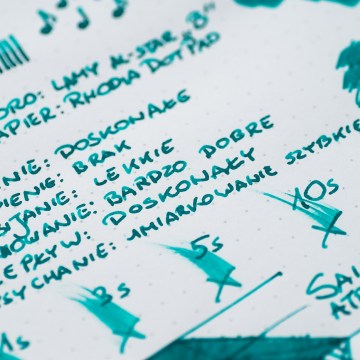 ORO: LAMY AL-STAR "B"
APIER: RHODIA DOT PAD
NIE: DOSKONAŁE
PIENIE: BRAK
IJANIE: LEKKIE
OWANIE: BARDZO DOBRE
EPŁYW: DOSKONAŁY
YSYCHANIE: UMIARKOWANIE SZYBKIE
1s 3s 5s 10s
SA
AT